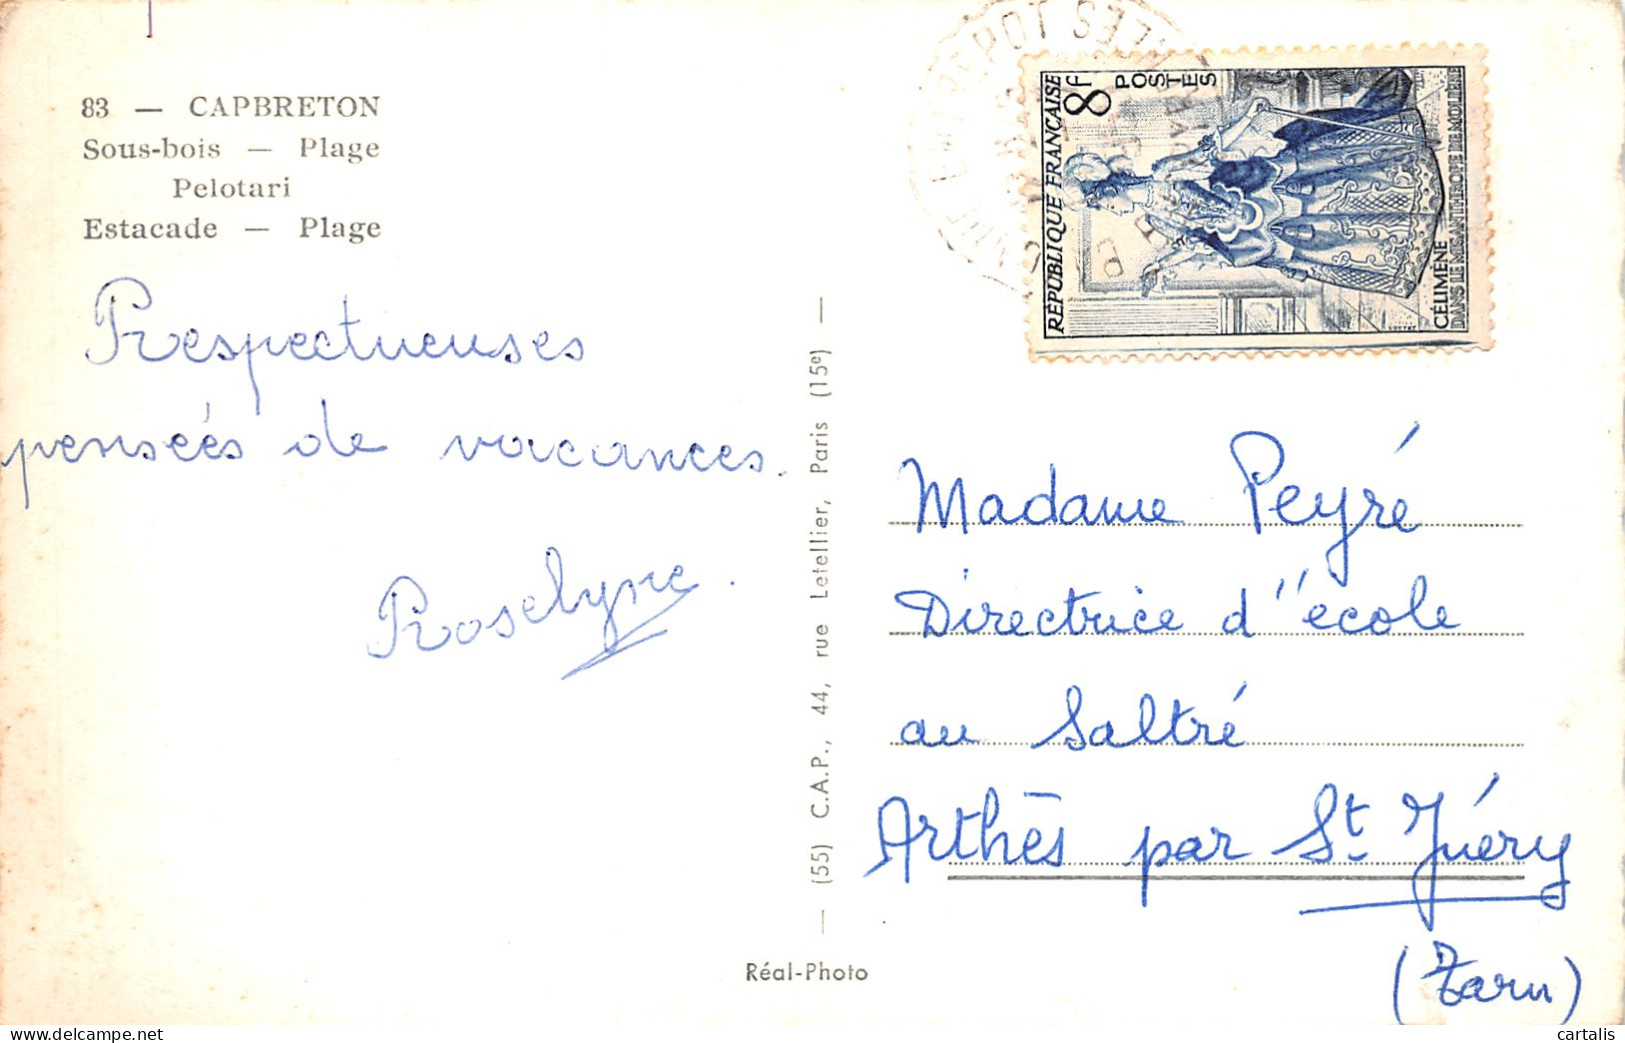 83 — CAPBRETON
Sous-bois — Plage
Pelotari
Estacade — Plage
Respectueuses
pensées de vacances.
Roselyne.
— (55) C.A.P., 44, rue Letellier, Paris (15e) —
Réal-Photo
RÉPUBLIQUE FRANÇAISE
8F
POSTES
CÉLIMÈNE
DANS LE MISANTHROPE DE MOLIÈRE
Madame Peyré
Directrice d'école
au Saltré
Arthès par St Juéry
(Tarn)
cartalis